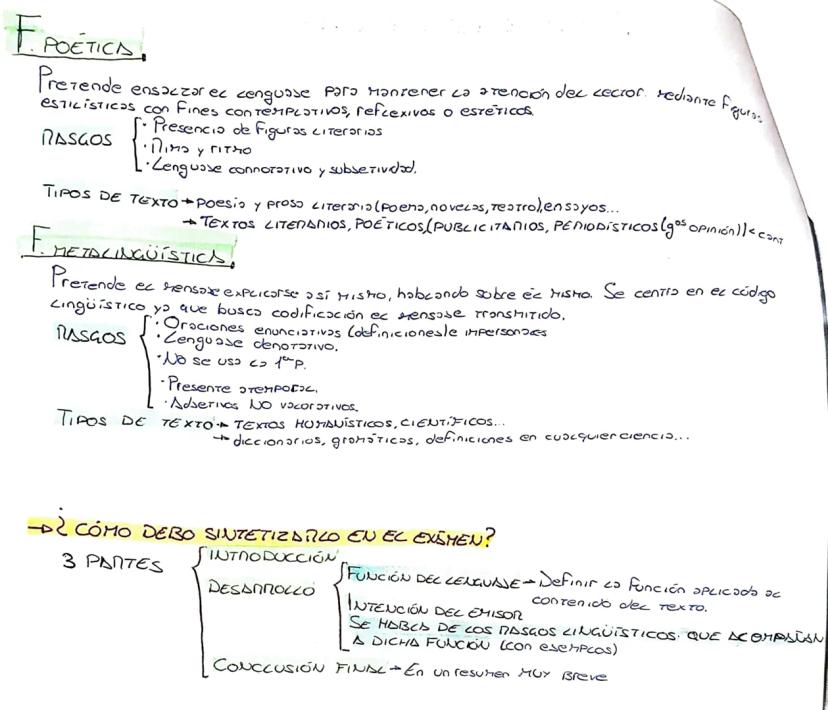 F. POÉTICA.
Pretende ensalzar el lenguaje para mantener la atención del lector. mediante figuras
estilísticas con fines contemplativos, reflexivos o estéticos.
RASGOS
· Presencia de figuras literarias
· Rima y ritmo
· Lenguaje connotativo y subjetividad.
TIPOS DE TEXTO → poesía y prosa literaria (poema, novelas, teatro), ensayos...
→ TEXTOS LITERARIOS, POÉTICOS, (PUBLICITARIOS, PERIODÍSTICOS (gos OPINIÓN)) < cant
F. METALINGÜÍSTICA.
Pretende el mensaje explicarse así mismo, hablando sobre él mismo. Se centra en el código
Lingüístico ya que busca codificación el mensaje transmitido.
RASGOS
· Oraciones enunciativas (definiciones) e impersonales
· Lenguaje denotativo.
· No se usa la 1ª p.
· Presente atemporal.
· Adjetivos NO valorativos.
TIPOS DE TEXTO → TEXTOS HUMANÍSTICOS, CIENTÍFICOS...
→ diccionarios, gramáticas, definiciones en cualquier ciencia...
→ ¿CÓMO DEBO SINTETIZARLO EN EL EXÁMEN?
3 PARTES
INTRODUCCIÓN
DESARROLLO
FUNCIÓN DEL LENGUAJE → Definir la función aplicada al
contenido del texto.
INTENCIÓN DEL EMISOR
SE HABLA DE LOS RASGOS LINGÜÍSTICOS QUE ACOMPAÑAN
A DICHA FUNCIÓN (con ejemplos)
CONCLUSIÓN FINAL → En un resumen MUY Breve